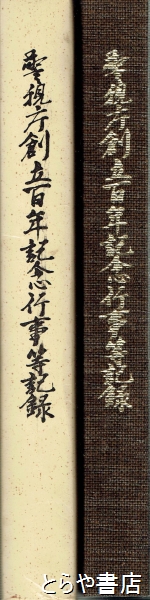 警視庁創立百年記念行事等記録
警視庁創立百年記念行事等記録
とらや書店